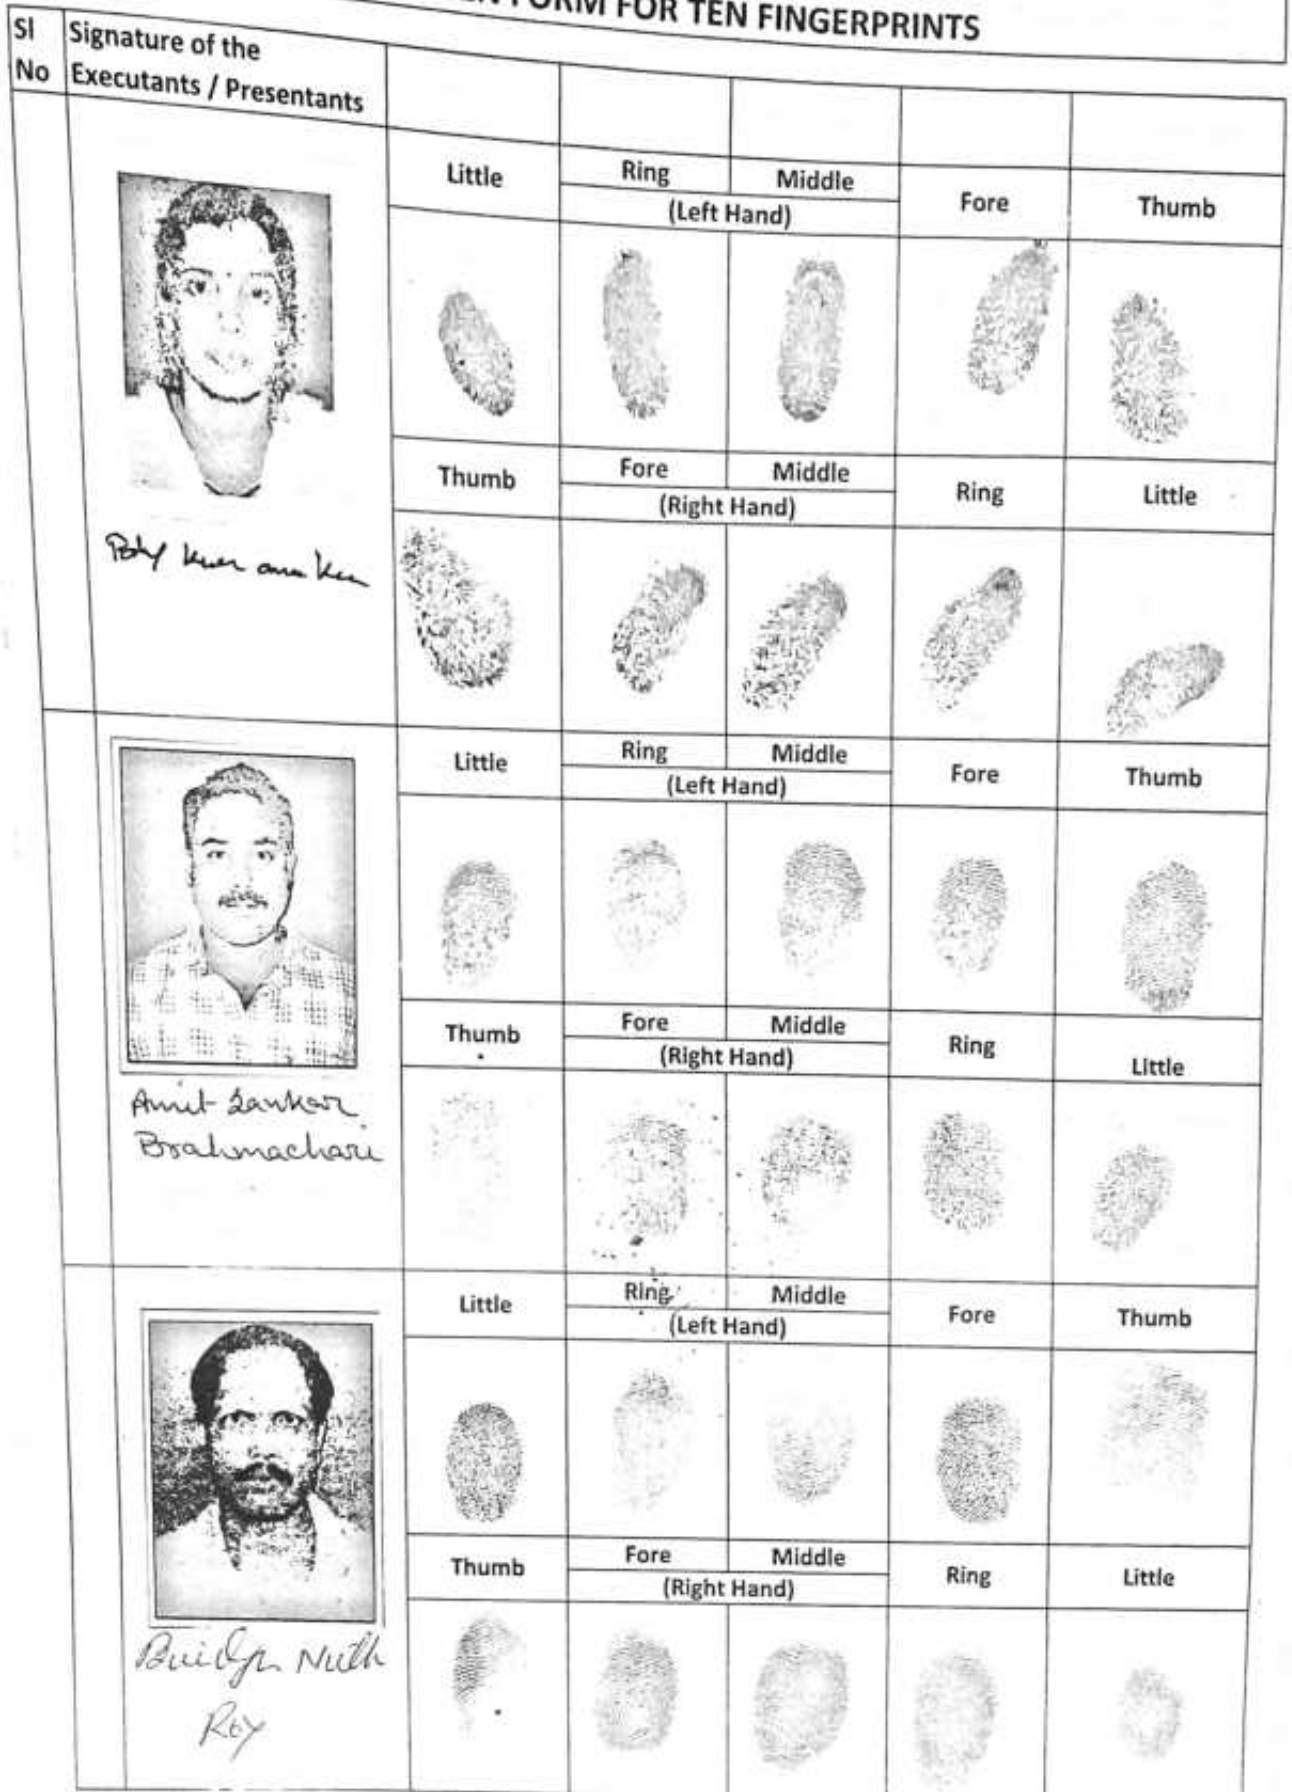 FORM FOR TEN FINGERPRINTS
Sl No
Signature of the
Executants / Presentants
Little Ring Middle Fore Thumb
(Left Hand)
Thumb Fore Middle Ring Little
(Right Hand)
Little Ring Middle Fore Thumb
(Left Hand)
Thumb Fore Middle Ring Little
(Right Hand)
Amit Sankar
Brahmachari
Little Ring Middle Fore Thumb
(Left Hand)
Thumb Fore Middle Ring Little
(Right Hand)
Nath
Roy